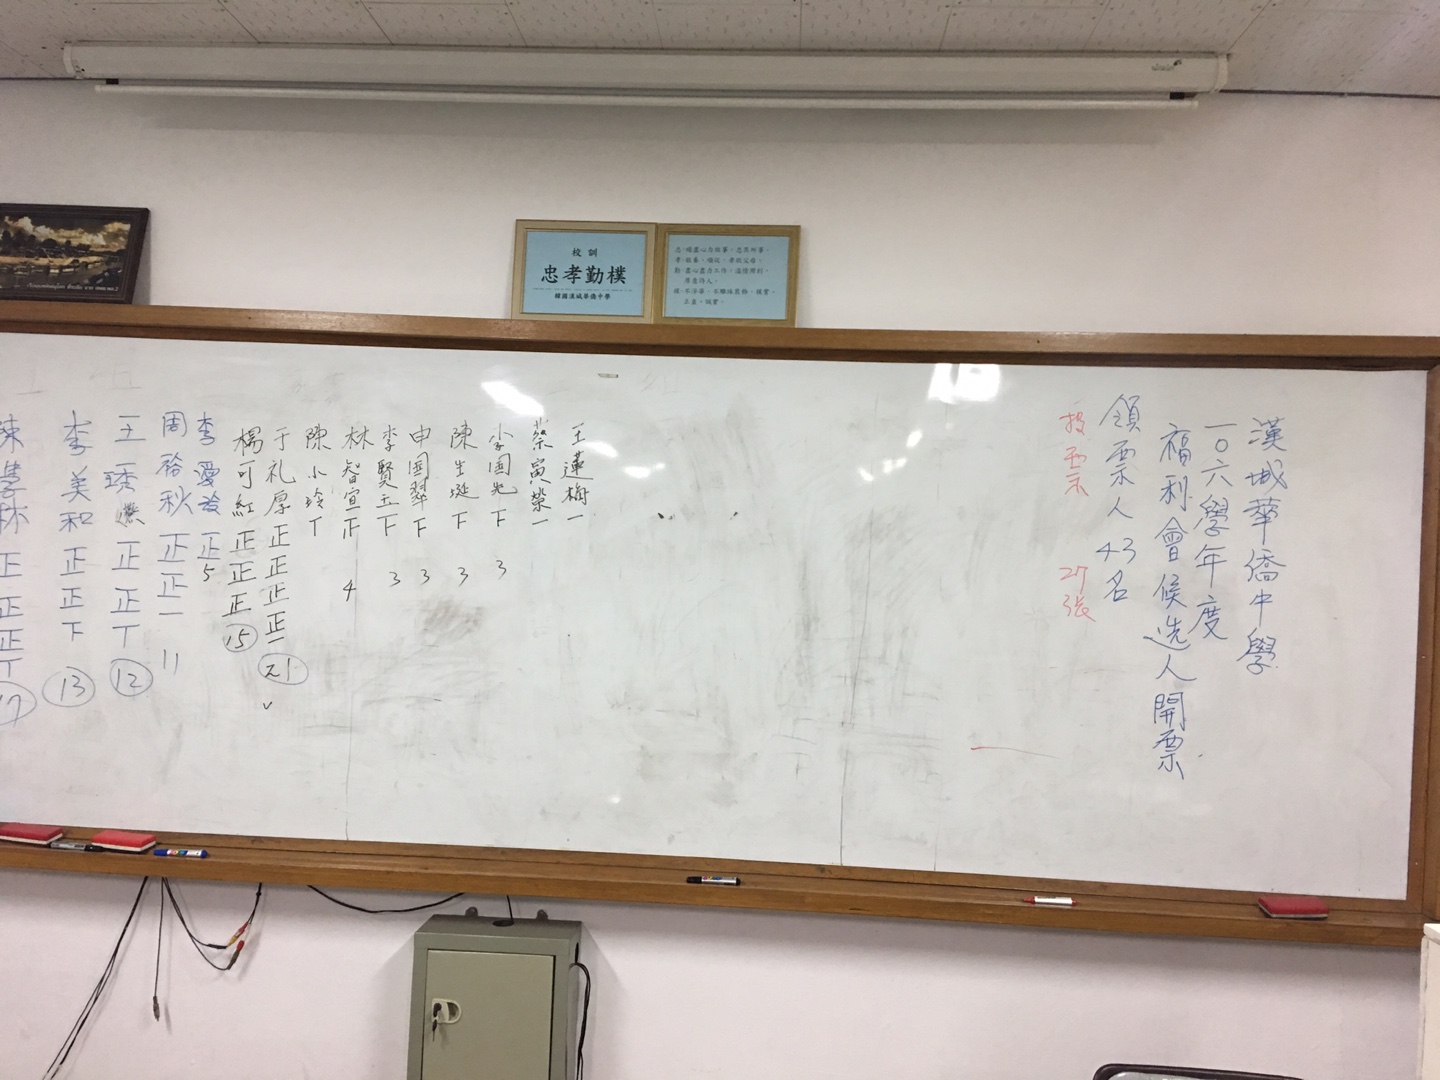 校訓
忠孝勤樸
韓國漢城華僑中學
漢城華僑中學
一○六學年度
福利會候选人開票
領票人43名
投票 27張
王蓮梅 一
蔡寅榮 一
李国光 下 3
陳生埏 下 3
申国翠 下 3
李賢玉 下 3
林智宣 正 4
陳小玲 丅
于礼厚 正正正正一 21
楊可紅 正正正 15
李愛 正 5
周裕秋 正正一 11
王琇 正正丅 12
李美和 正正下 13
正正正丅 17